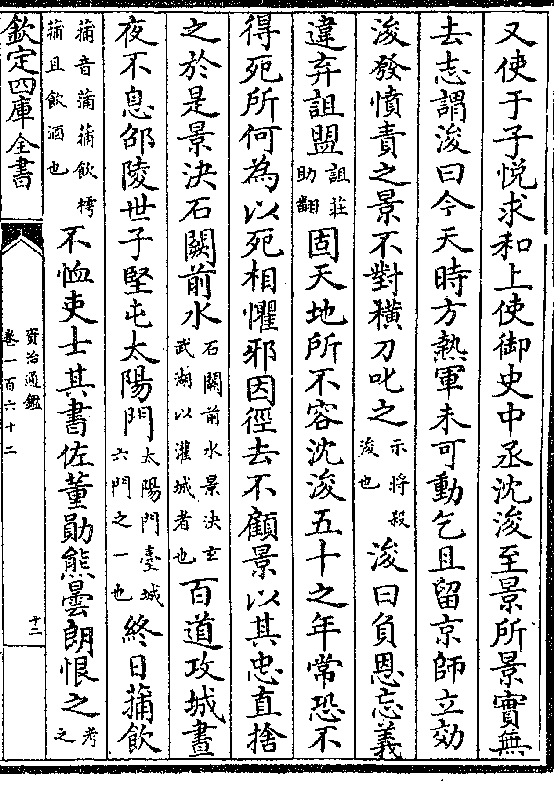 又使于子悅求和上使御史中丞沈浚至景所景實無
去志謂浚曰今天時方熱軍未可動乞且留京師立効
浚發憤責之景不對橫刀叱之示將殺浚也浚曰負恩忘義
違弃詛盟詛莊助翻固天地所不容沈浚五十之年常恐不
得死所何為以死相懼邪因徑去不顧景以其忠直捨
之於是景決石闕前水石闕前水景決玄武湖以灌城者也百道攻城晝
夜不息邵陵世子堅屯太陽門太陽門臺城六門之一也終日蒱飲
蒱音蒲蒱飲樗蒱且飲酒也不恤吏士其書佐董勛熊曇朗恨之考之
欽定四庫全書
資治通鑑
卷一百六十二
十二